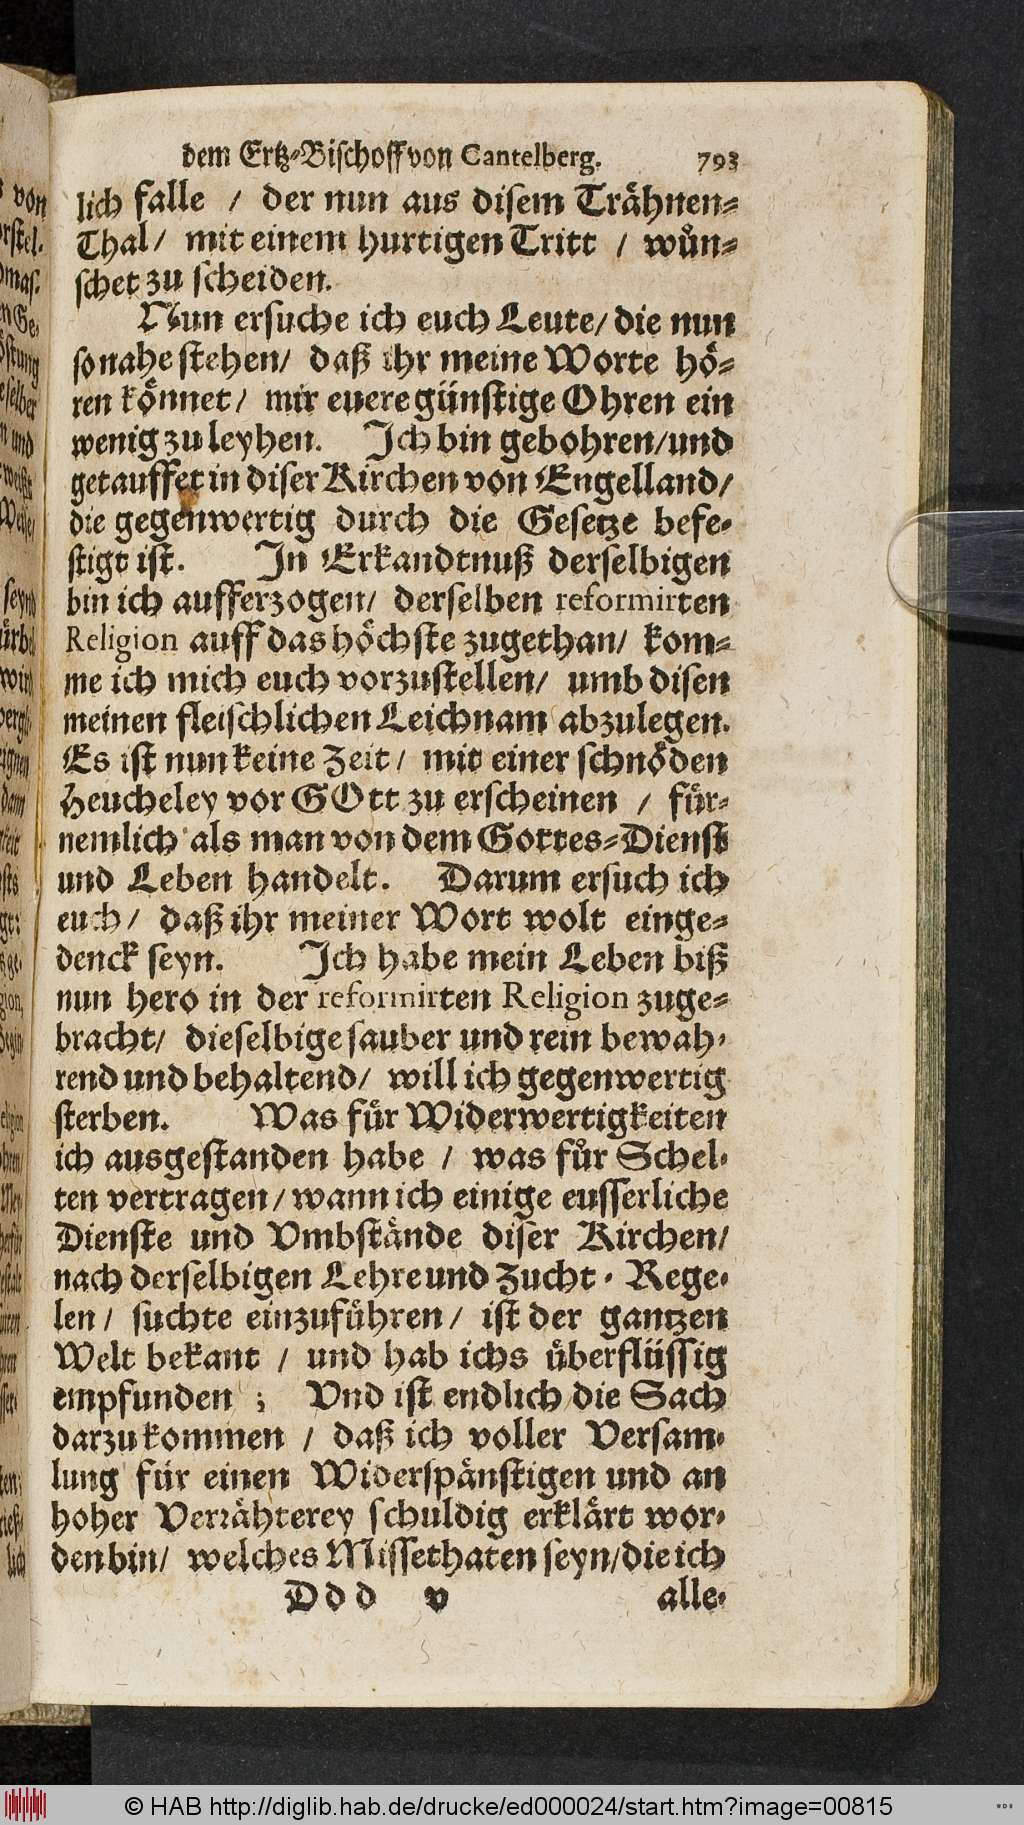 dem Ertz-Bischoff von Cantelberg. 793
lich falle / der nun aus disem Trähnen-
Thal / mit einem hurtigen Tritt / wün-
schet zu scheiden.
Nun ersuche ich euch Leute / die nun
so nahe stehen / daß ihr meine Worte hö-
ren könnet / mir euere günstige Ohren ein
wenig zu leyhen. Ich bin gebohren / und
getauffet in diser Kirchen von Engelland /
die gegenwertig durch die Gesetze befe-
stigt ist. In Erkandtnuß derselbigen
bin ich aufferzogen / derselben reformirten
Religion auff das höchste zugethan / kom-
me ich mich euch vorzustellen / umb disen
meinen fleischlichen Leichnam abzulegen.
Es ist nun keine Zeit / mit einer schnöden
Heucheley vor GOtt zu erscheinen / für-
nemlich als man von dem Gottes-Dienst
und Leben handelt. Darum ersuch ich
euch / daß ihr meiner Wort wolt einge-
denck seyn. Ich habe mein Leben biß
nun hero in der reformirten Religion zuge-
bracht / dieselbige sauber und rein bewah-
rend und behaltend / will ich gegenwertig
sterben. Was für Widerwertigkeiten
ich ausgestanden habe / was für Schel-
ten vertragen / wann ich einige eusserliche
Dienste und Vmbstände diser Kirchen /
nach derselbigen Lehre und Zucht-Rege-
len / suchte einzuführen / ist der gantzen
Welt bekant / und hab ichs überflüssig
empfunden ; Vnd ist endlich die Sach
darzu kommen / daß ich voller Versam-
lung für einen Widerspänstigen und an
hoher Verrähterey schuldig erklärt wor-
den bin / welches Missethaten seyn / die ich
Ddd v alle-
© HAB http://diglib.hab.de/drucke/ed000024/start.htm?image=00815